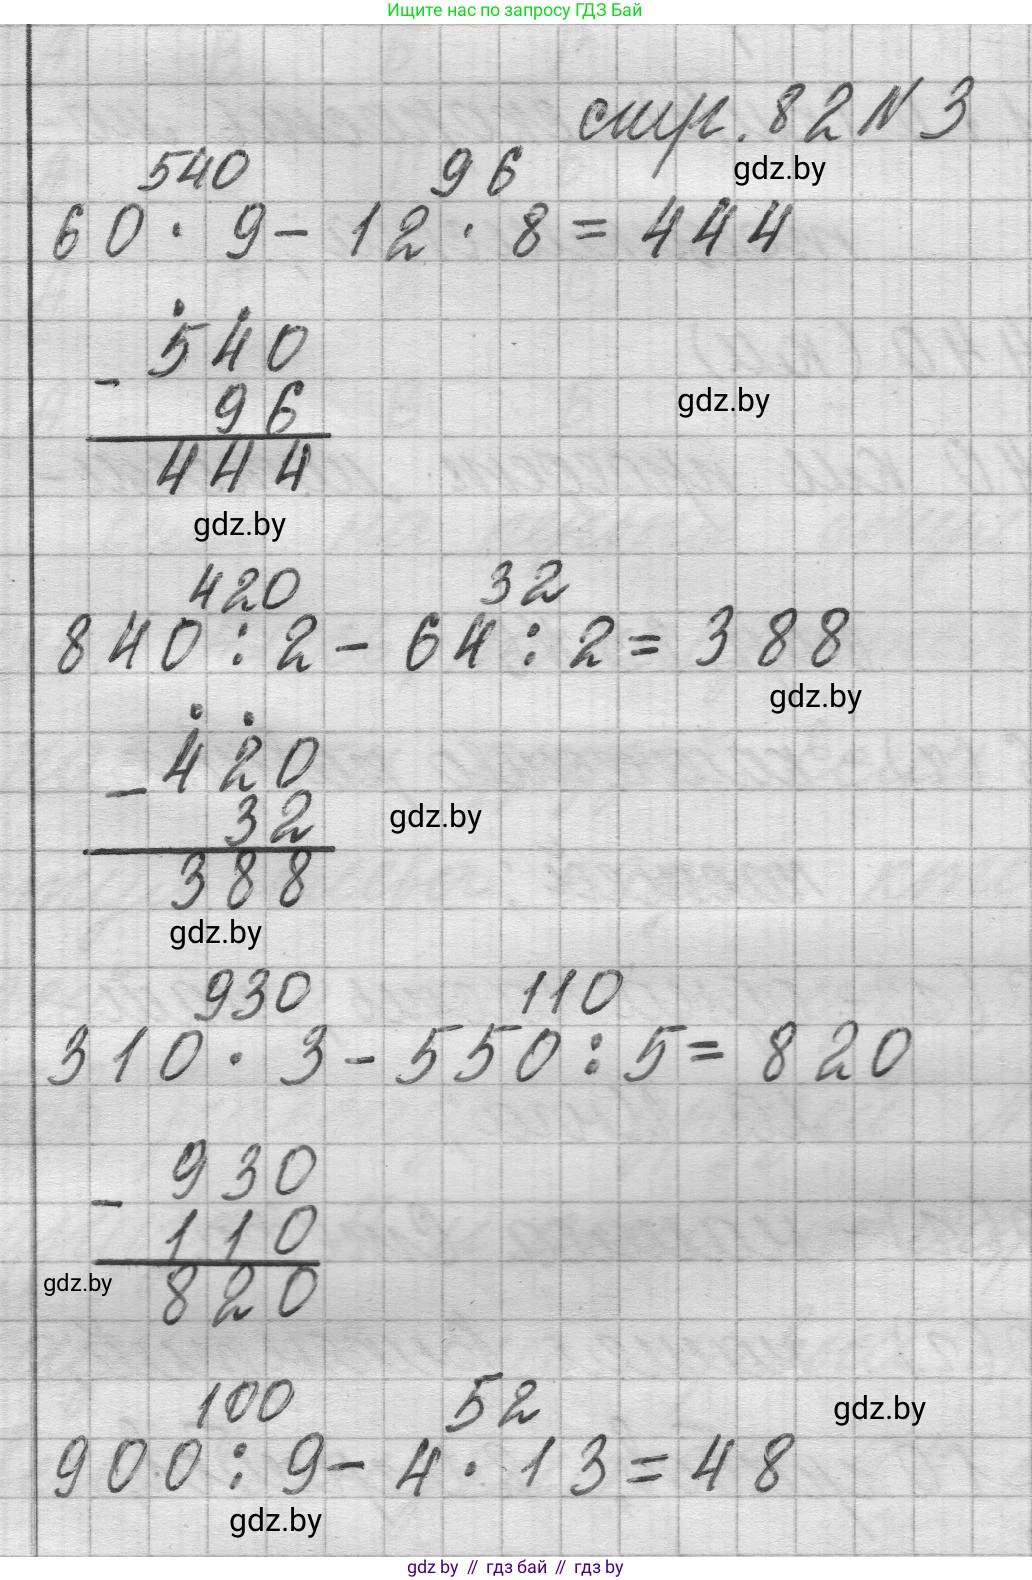 Ищите нас по запросу ГДЗ Бай
стр. 82 N 3
gdz.by
540 96
60 · 9 - 12 · 8 = 444
- 540
gdz.by
96
444
gdz.by
420 32
840 : 2 - 64 : 2 = 388
gdz.by
- 420
32
gdz.by
388
gdz.by
930 110
310 · 3 - 550 : 5 = 820
- 930
110
gdz.by
820
100 52
gdz.by
900 : 9 - 4 · 13 = 48
gdz.by
gdz.by // гдз бай // гдз by